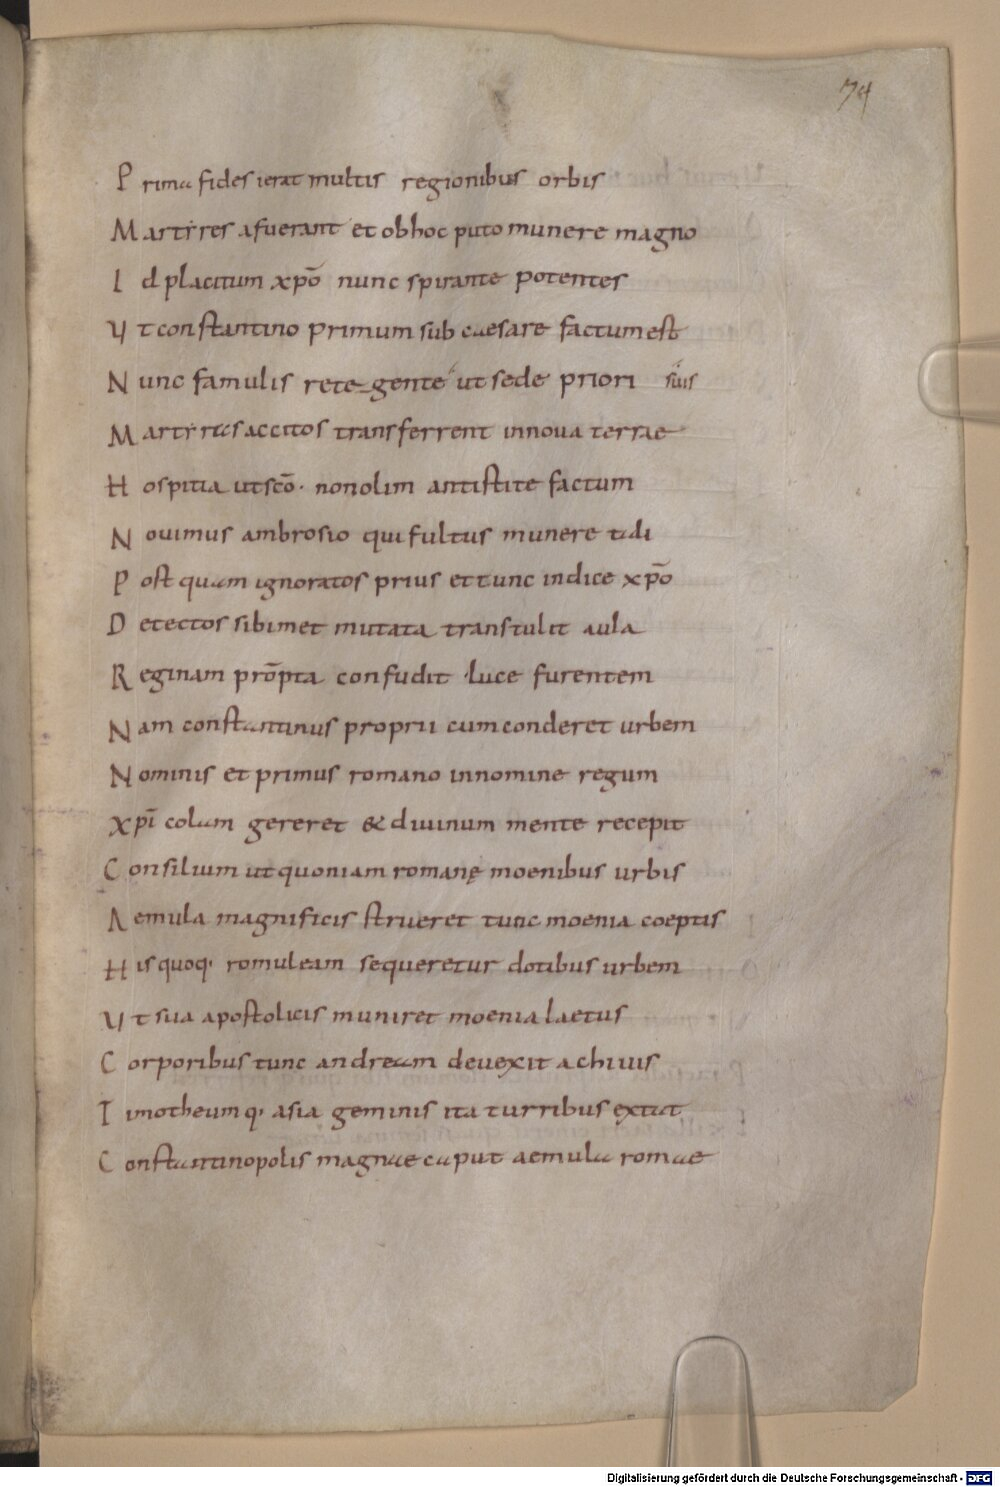 74
Prima fides ierat multis regionibus orbis
Martyres afuerant et obhoc puto munere magno
Id placitum xpō nunc spirante potentes
Ut constantino primum sub caesare factum est
Nunc famulis retegente ut sede priori suis
Martyres accitos transferrent innova terrae
Hospitia utscō. non olim antistite factum
Novimus ambrosio qui fultus munere tali
Postquam ignoratos prius et tunc indice xpō
Detectos sibimet mutata transtulit aula
Reginam prōpta confudit luce furentem
Nam constantinus proprii cum conderet urbem
Nominis et primus romano innomine regum
Xpī colam gereret & divinum mente recepit
Consilium ut quoniam romanę moenibus urbis
Aemula magnificis strueret tunc moenia coeptis
His quoq· romuleam sequeretur dotibus urbem
Ut sua apostolicis muniret moenia laetus
Corporibus tunc andream devexit achivis
Timotheumq· asia geminis ita turribus extat
Constantinopolis magnae caput aemula romae
Digitalisierung gefördert durch die Deutsche Forschungsgemeinschaft - DFG